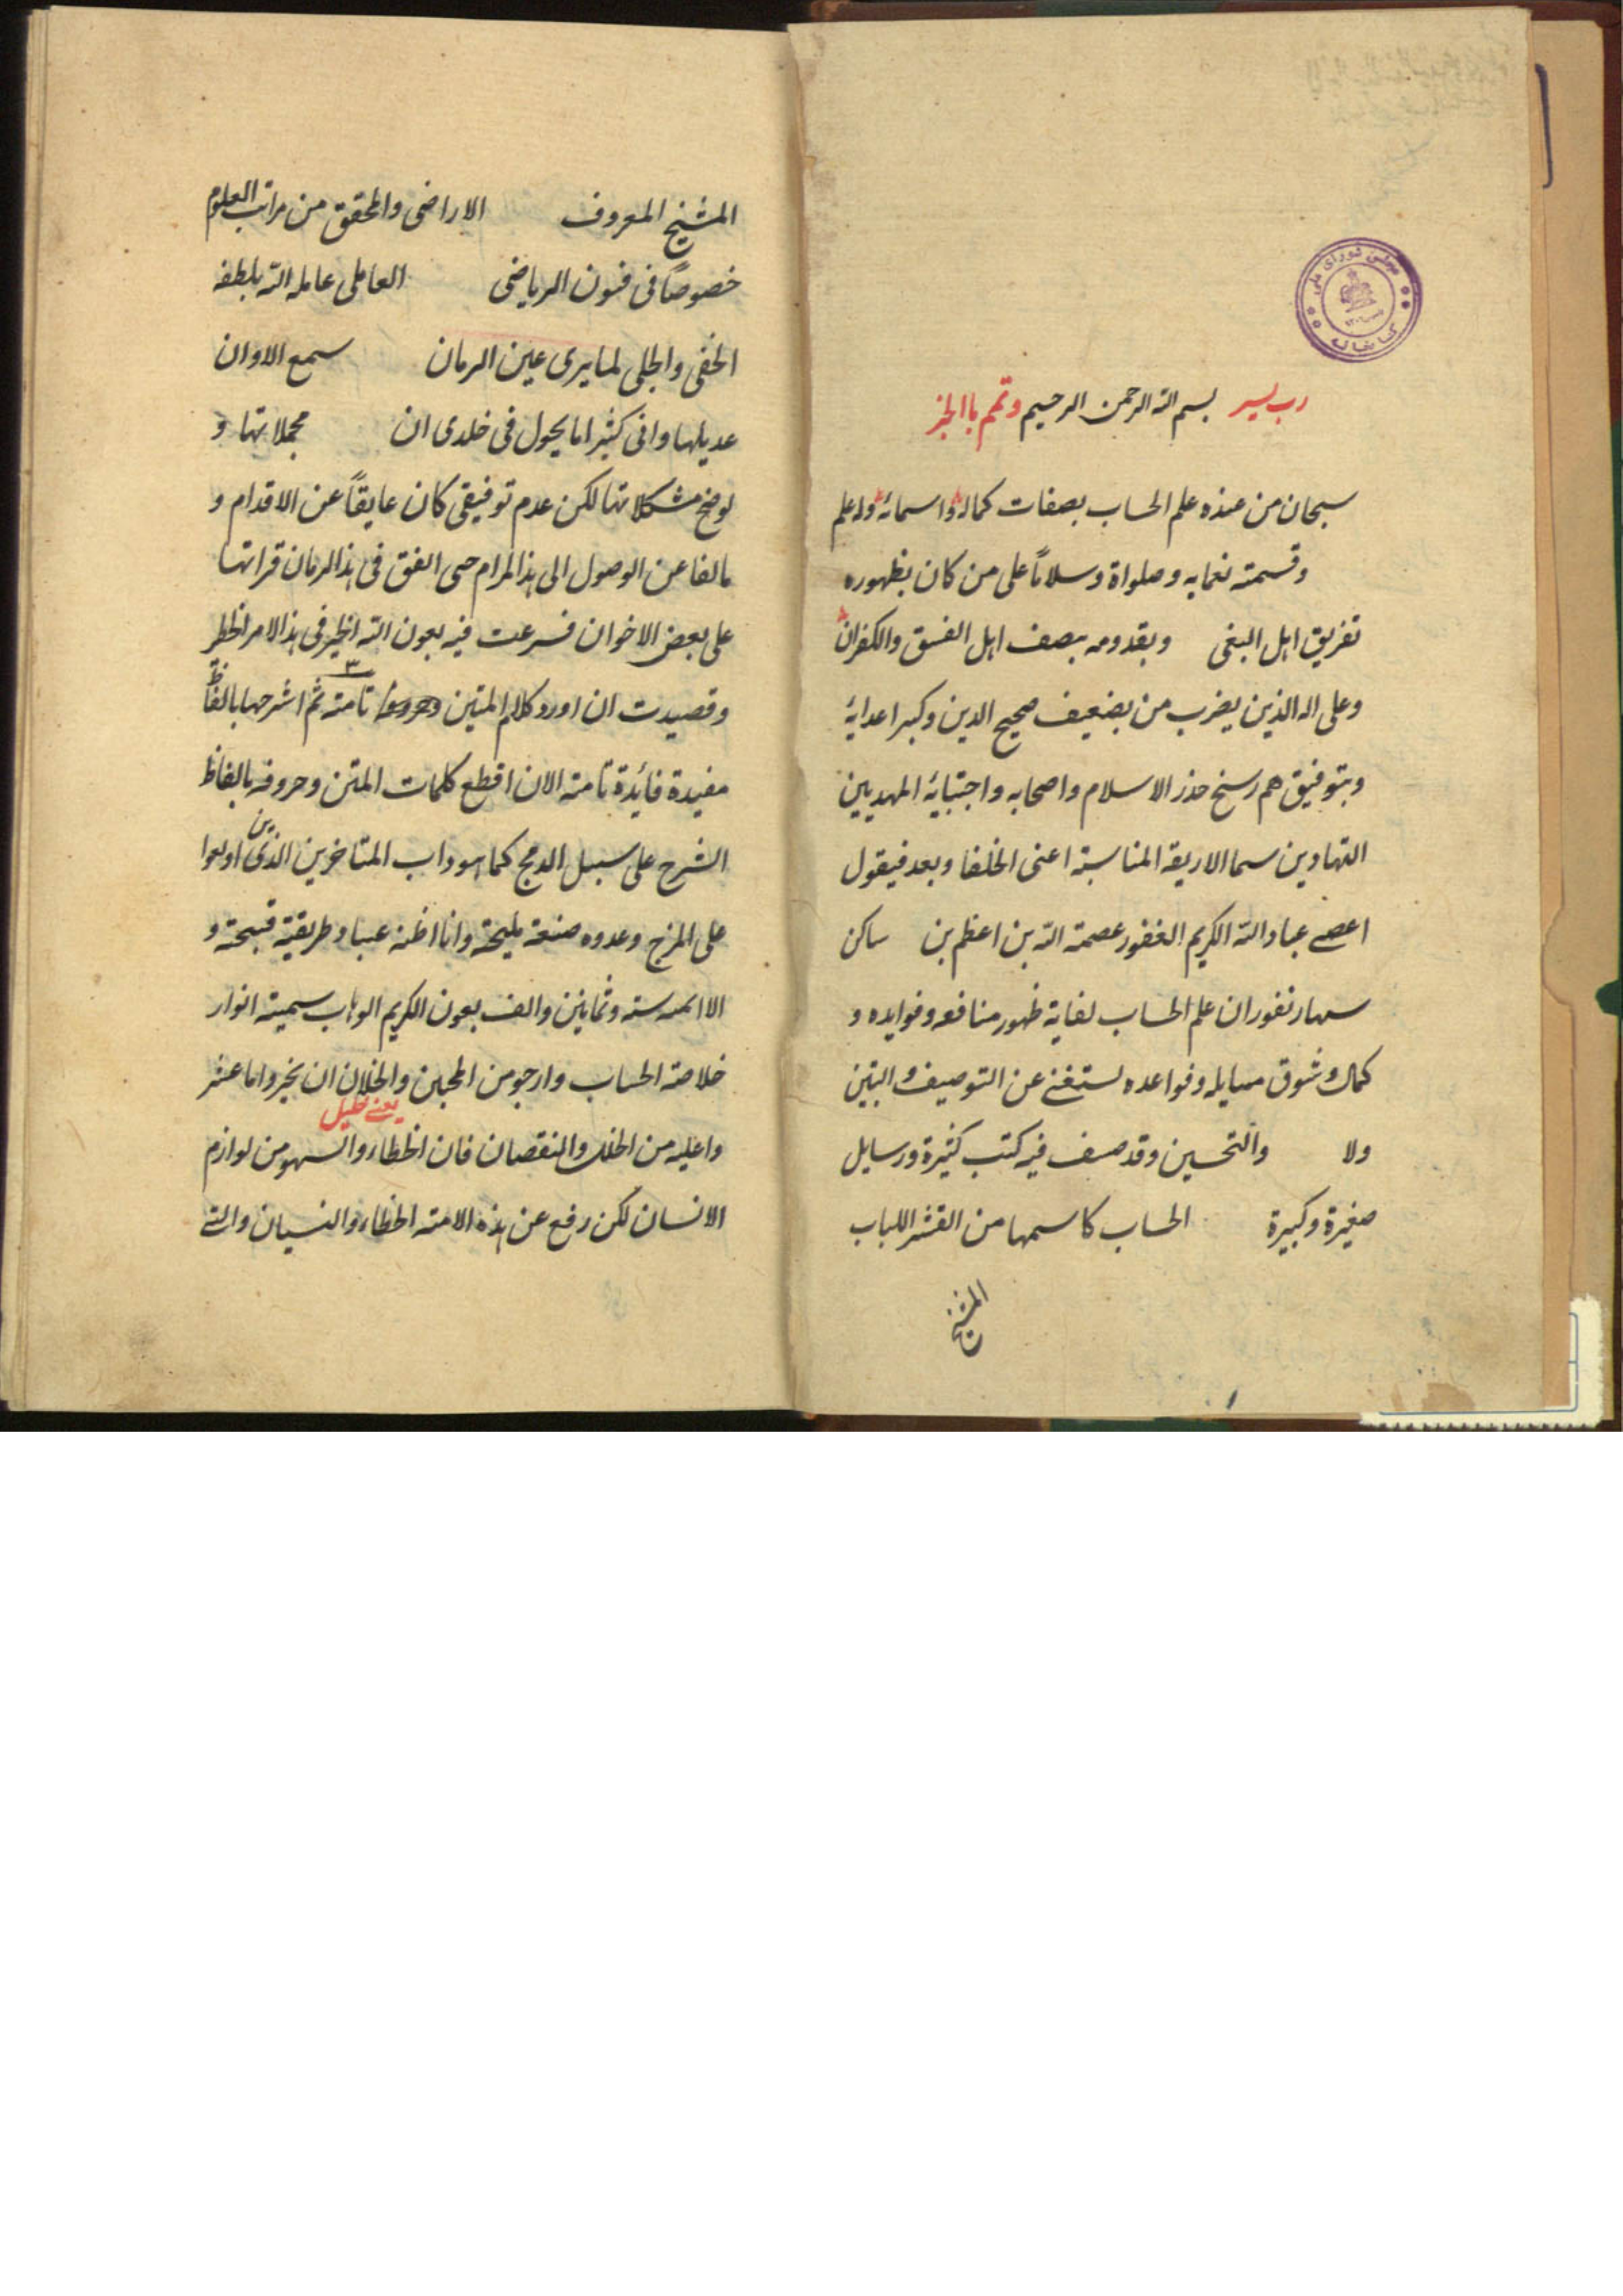 رب يسر بسم الله الرحمن الرحيم وتمم بالخير
سبحان من عنده علم الحساب بصفات كماله واسمائه وله علم
وقسمته نعمايه وصلواة وسلاماً على من كان بظهوره
تفريق اهل البغى وبقدومه بصف اهل الفسق والكفران
وعلى اله الذين يضرب من بضعيف صحيح الدين وكبر اعدايه
وبتوفيق هم رسخ حذر الاسلام واصحابه واجتبايه المهديين
الهادين سما الاربعة المناسبة اعنى الخلفا وبعد فيقول
اعصى عباد الله الكريم الغفور عصمة الله بن اعظم بن ساكن
سهارنفور ان علم الحساب لغاية ظهور منافعه وفوايده و
كمال وشوق مسايله وقواعده يستغنى عن التوصيف والتبيين
ولا والتحسين وقد صنف فيه كتب كثيرة ورسايل
صغيرة وكبيرة الحساب كاسمها من القشر اللباب
الشيخ
الشيخ المعروف الاراضى والمحقق من مراتب العلوم
خصوصاً فى فنون الرياضى العاملى عامله الله بلطفه
الخفى والجلى لما يرى عين الزمان سمع الاوان
عديلها وانى كثيرا ما يحول فى خلدى ان مجملاتها و
يوضح مشكلاتها لكن عدم توفيقى كان عايقاً عن الاقدام و
مانعا عن الوصول الى هذا المرام حتى اتفق فى هذا الزمان قراتها
على بعض الاخوان فسرعت فيه بعون الله الخير فى هذا الامر الخطر
وقصيدت ان اورد كلام المتين تامة ثم اشرحها بالفاظ
مفيدة فائدة تامة الان اقطع كلمات المتن وحروفه بالفاظ
الشرح على سبيل الدمج كما هو داب المتاخرين الذين اولعوا
على المزج وعدوه صنعة مليحة وانا اظنه عبثا وطريقية قبيحة و
الا سنة وثمانين والف بعون الكريم الوهاب سميته انوار
خلاصة الحساب وارجو من المحبين والخلان ان يخبروا ما عثر
يعنى خليل
واعليه من الخلل والنقصان فان الخطاء والسهو من لوازم
الانسان لكن رفع عن هذه الامة الخطاء والنسيان والله